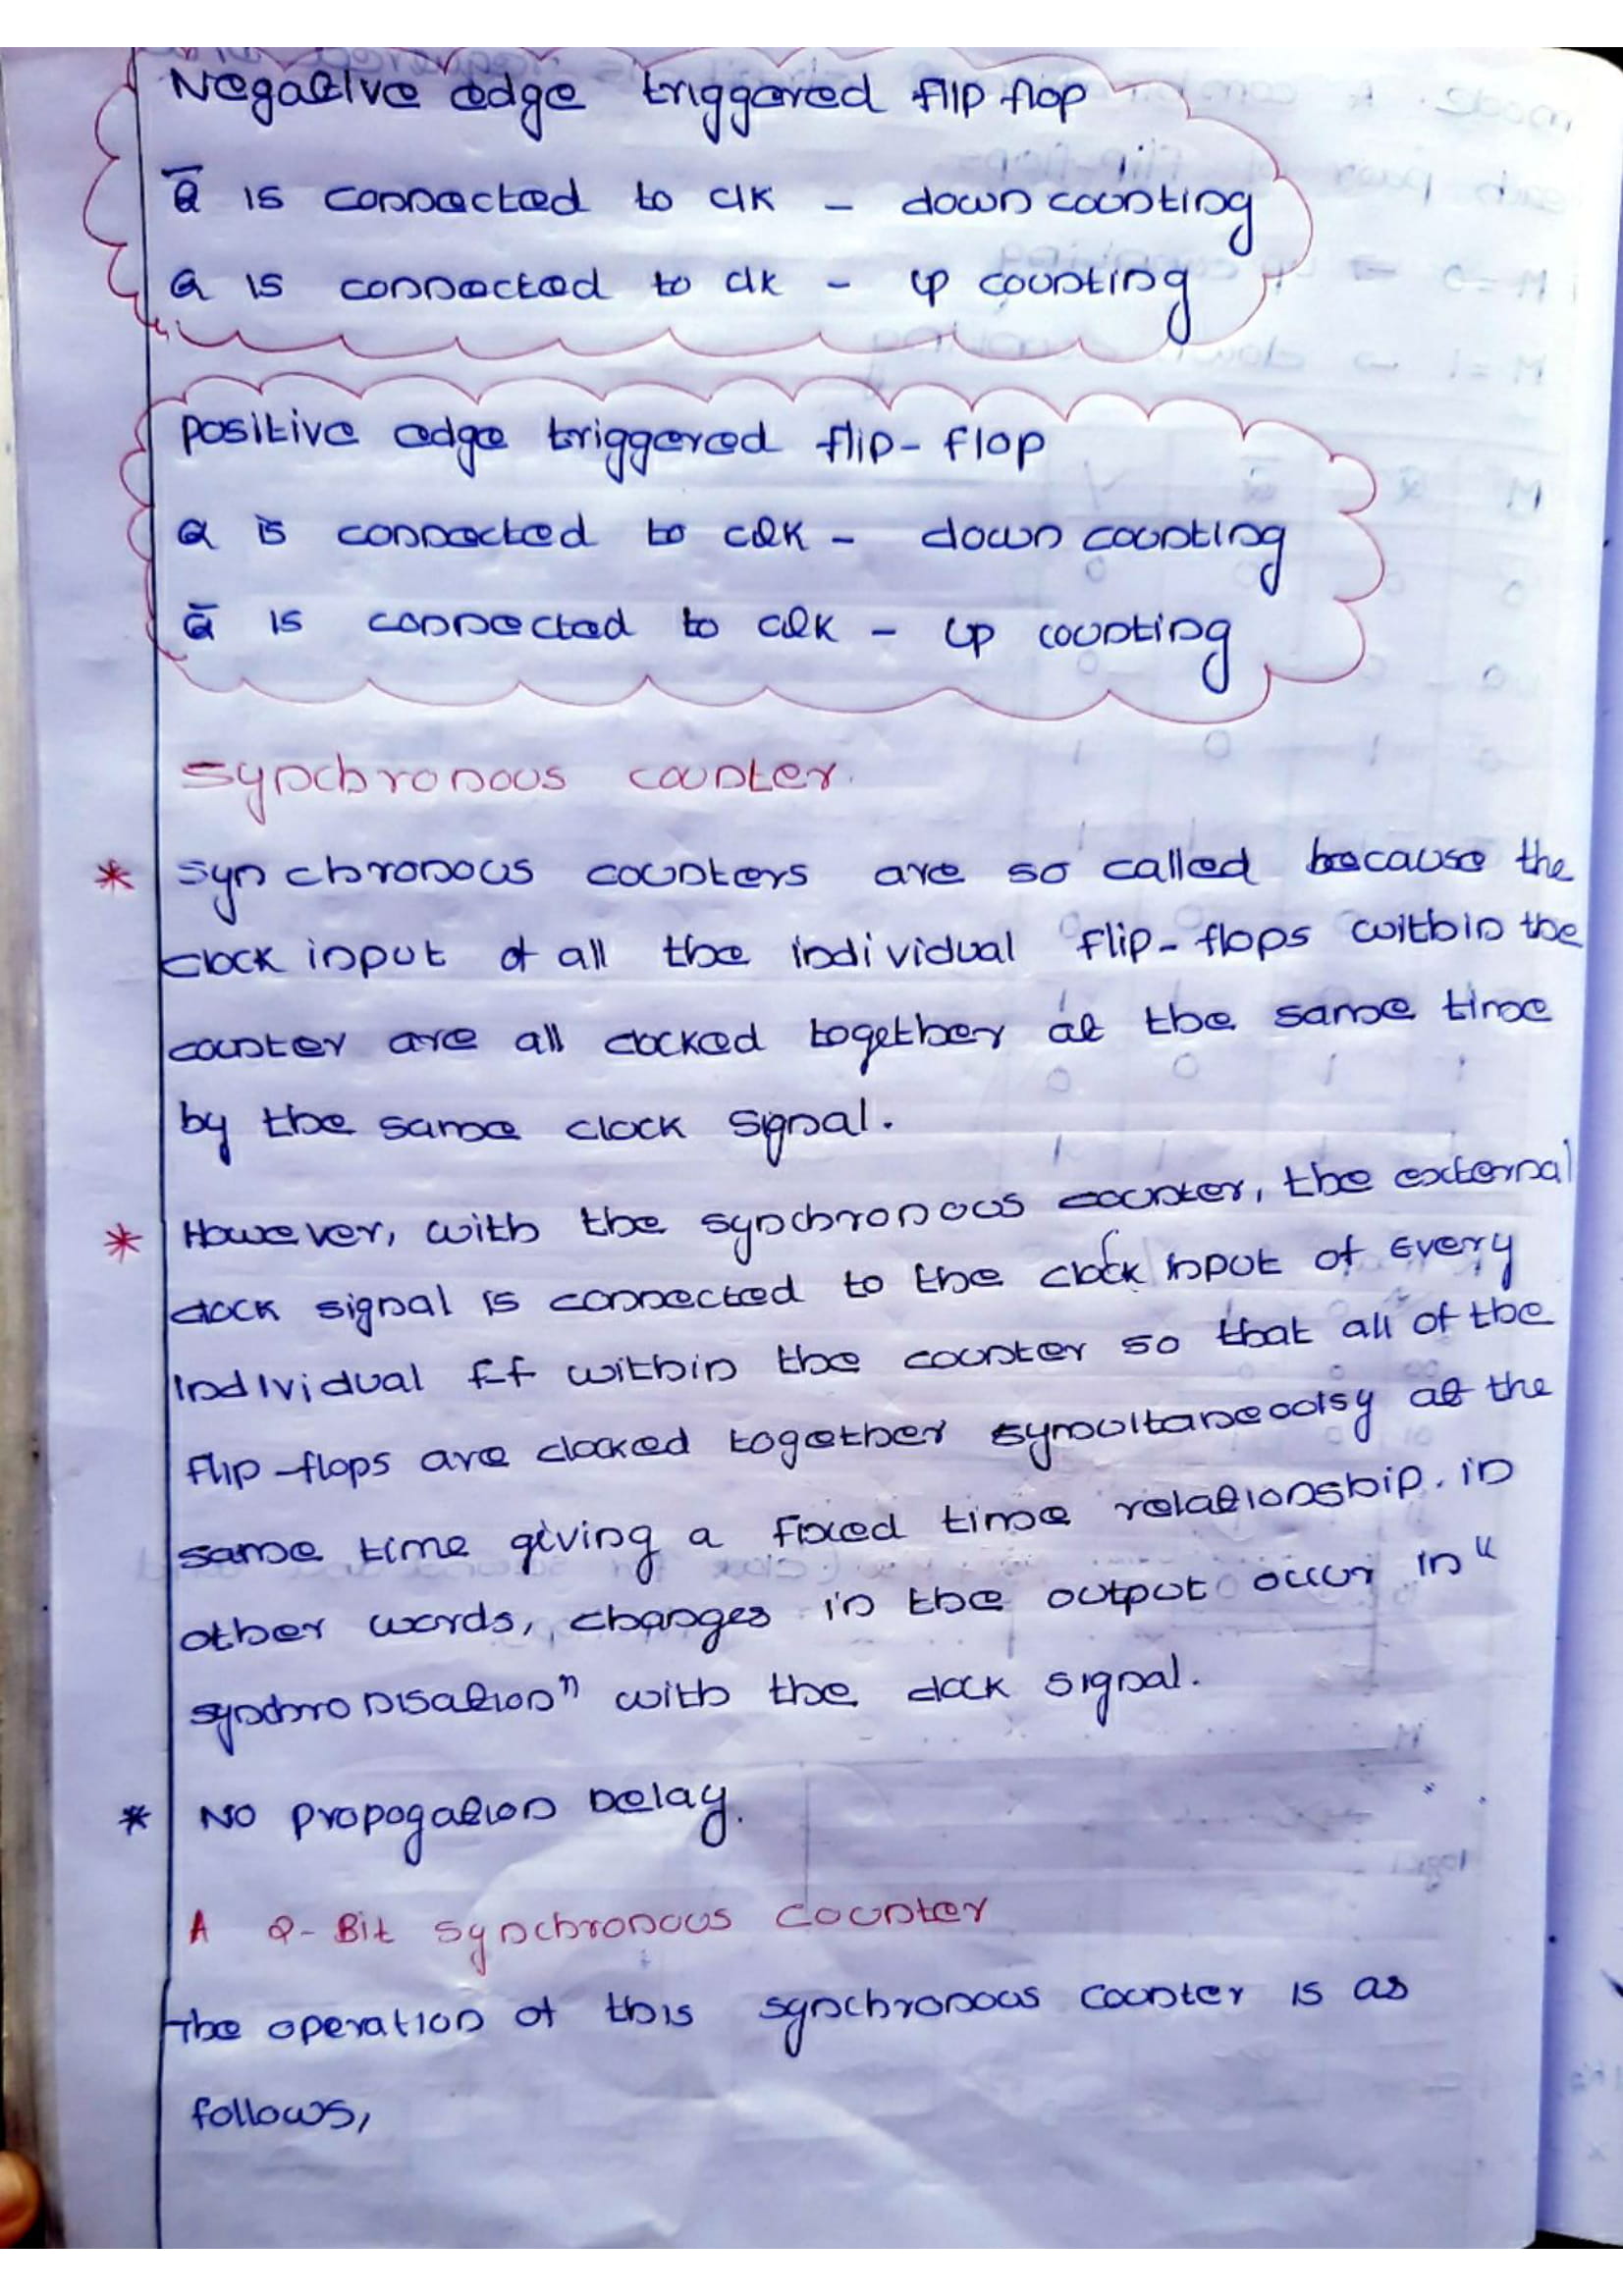 Negative edge triggered flip flop
Q̅ is connected to clk - down counting
Q is connected to clk - up counting
positive edge triggered flip-flop
Q is connected to clk - down counting
Q̅ is connected to clk - up counting
Synchronous counter.
* synchronous counters are so called because the
clock input of all the individual flip-flops within the
counter are all clocked together at the same time
by the same clock signal.
* However, with the synchronous counter, the external
clock signal is connected to the clock input of Every
individual ff within the counter so that all of the
flip-flops are clocked together symoultaneoolsy at the
same time giving a fixed time relationship. in
other words, changes in the output occur in "
synchronisation" with the clock signal.
* No propogation Delay.
A 2-Bit synchronous counter
The operation of this synchronous counter is as
follows,